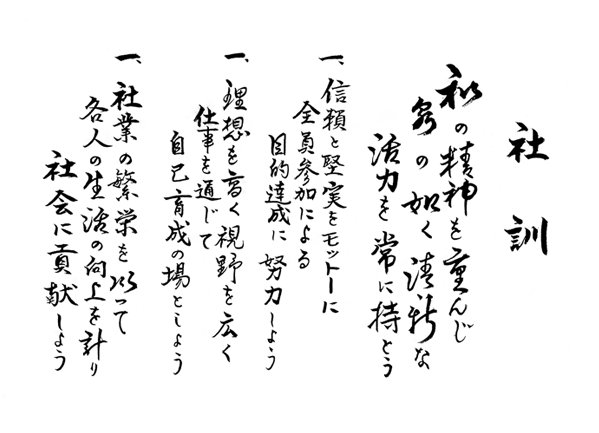 社訓
和の精神を重んじ
泉の如く清新な
活力を常に持とう
一、信頼と堅実をモットーに
全員参加による
目的達成に努力しよう
一、理想を高く視野を広く
仕事を通じて
自己育成の場としよう
一、社業の繁栄を以って
各人の生活の向上を計り
社会に貢献しよう